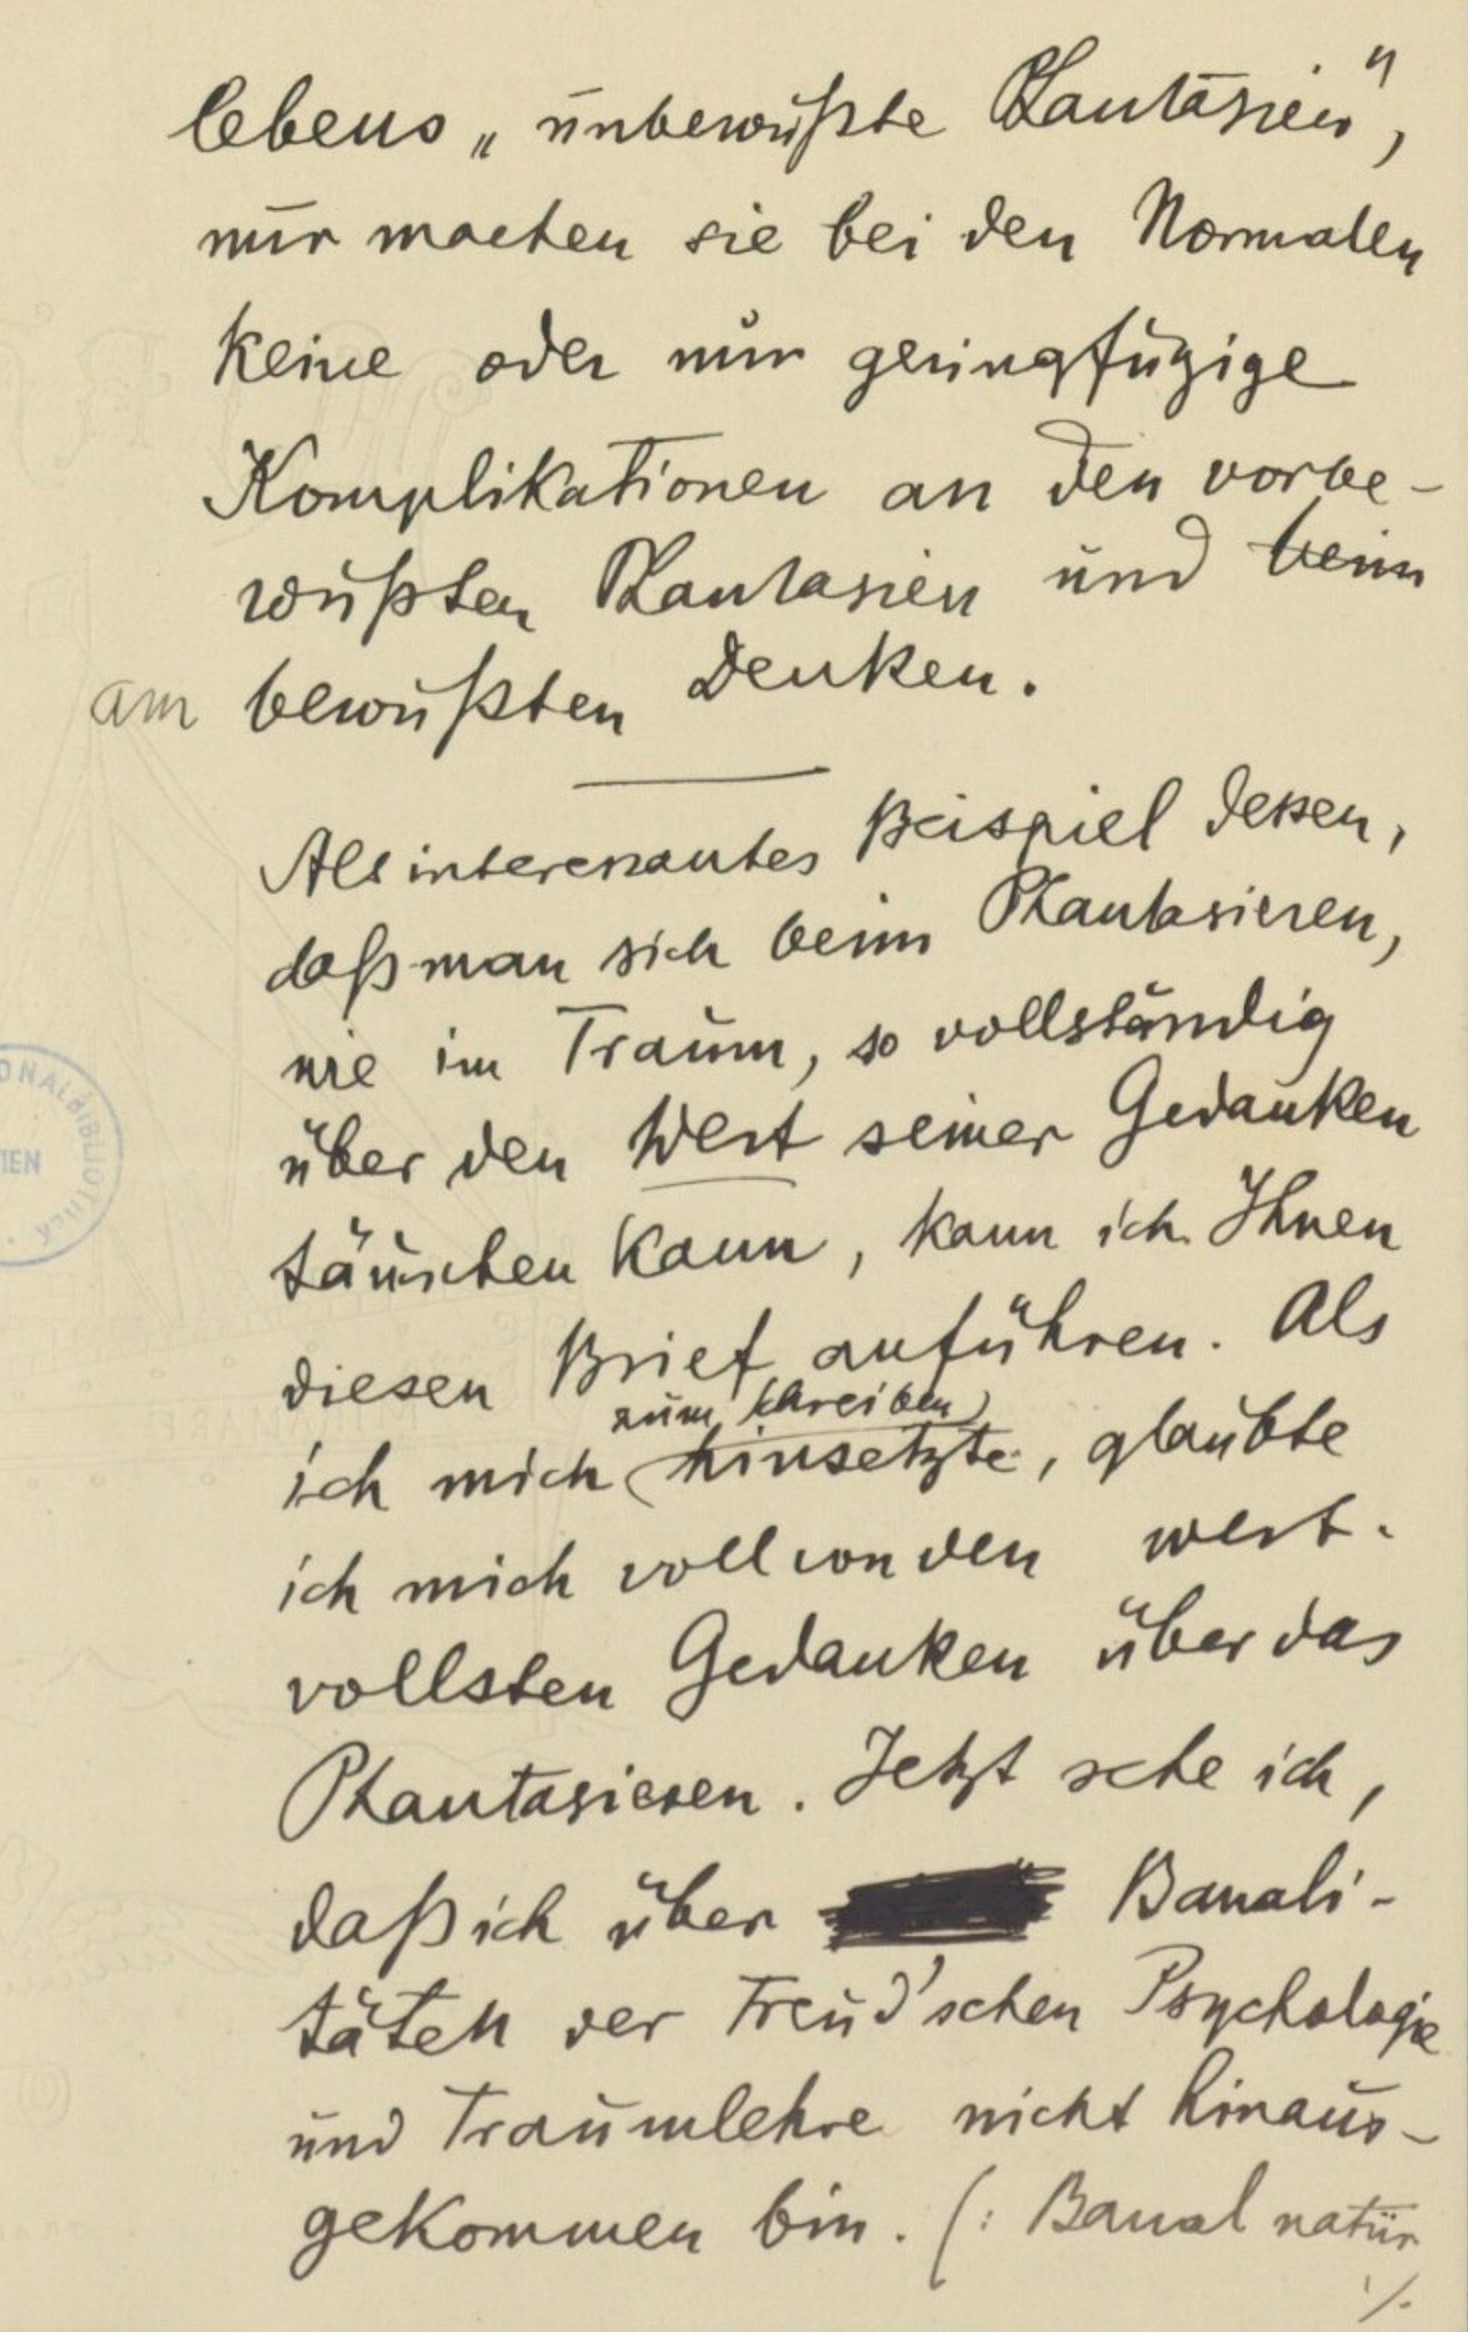 lebens „unbewußte Phantasien",
nur machen sie bei den Normalen
keine oder nur geringfügige
Komplikationen an den vorbe-
wußten Phantasien und beim
am bewußten Denken.
Als interessantes Beispiel dessen,
daß man sich beim Phantasieren,
wie im Traum, so vollständig
über den Wert seiner Gedanken
täuschen kann, kann ich Ihnen
diesen Brief anführen. Als
zum Schreiben
ich mich hinsetzte, glaubte
ich mich voll von den wert-
vollsten Gedanken über das
Phantasieren. Jetzt sehe ich,
daß ich über Banali-
täten der Freud'schen Psychologie
und Traumlehre nicht hinaus-
gekommen bin. (: Banal natür
./.
ONALBIBLIOTHEK
IEN